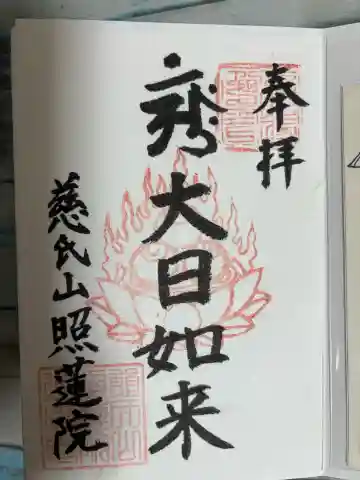 奉拝
大日如来
慈氏山照蓮院